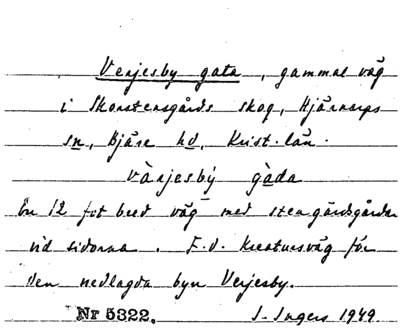 Verjesby gata, gammal väg
i Skorstensgårds skog, Hjärnarps
sn, Bjäre hd, Krist. län.
värjesby gada
En 12 fot bred väg med stengärdsgårdar
vid sidorna. F.d. Kreatursväg för
den nedlagda byn Verjesby.
Nr 5322. I. Ingers 1949.